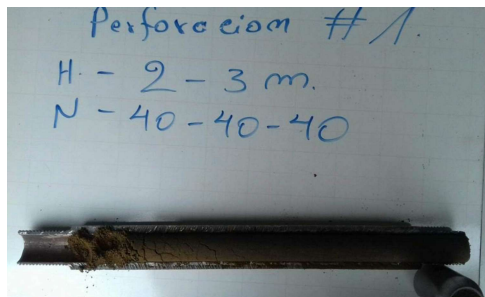 Perforacion #1.
H. - 2 - 3 m.
N - 40 - 40 - 40